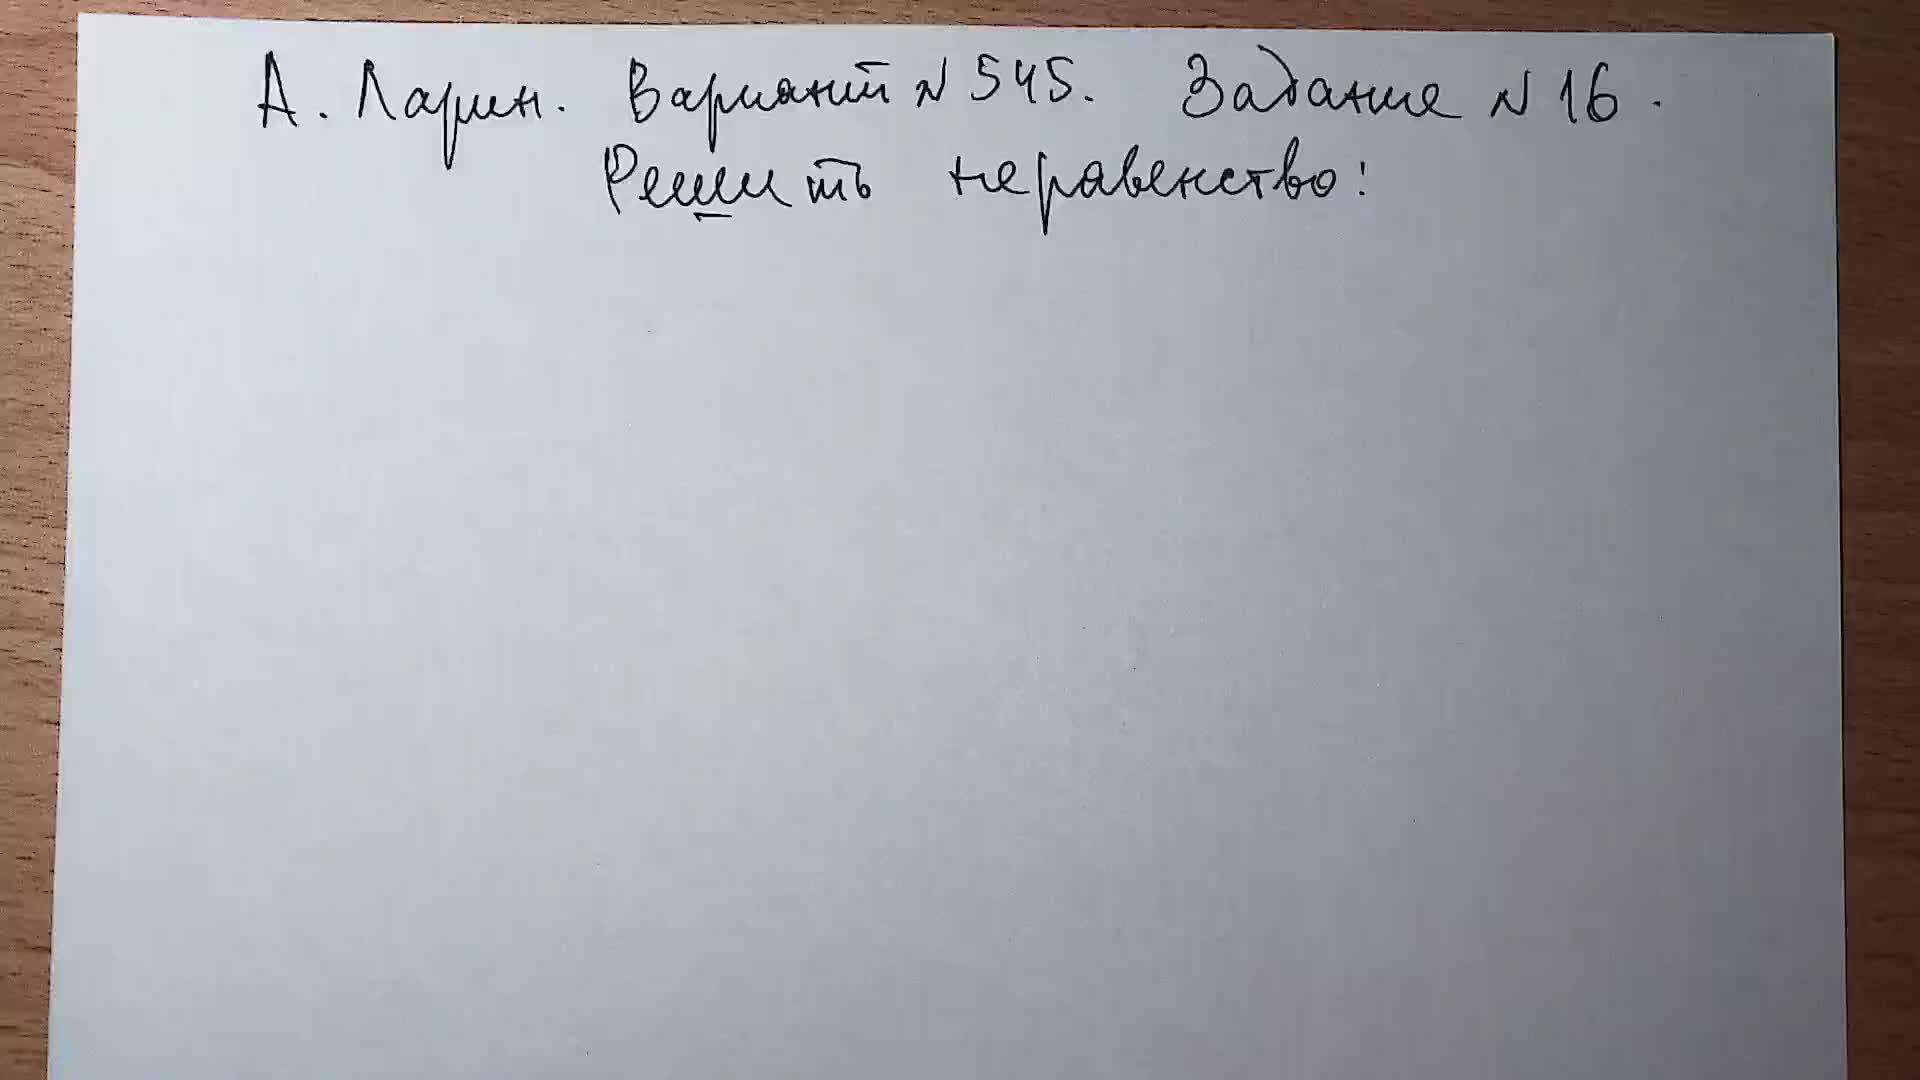 А. Ларин. Вариант № 545. Задание № 16.
Решить неравенство: